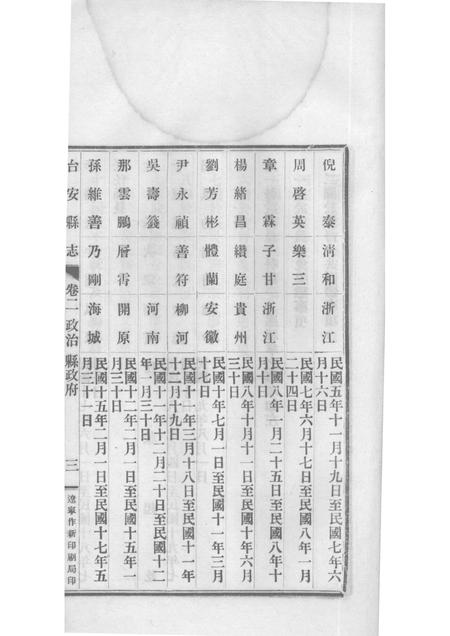 倪泰 清和 浙江 民國五年十一月十九日至民國七年六月十六日
周啓英 樂三 民國七年六月十七日至民國八年一月二十四日
章霖 子甘 浙江 民國八年一月二十五日至民國八年十月十日
楊緒昌 纘庭 貴州 民國八年十月十一日至民國十年六月三十日
劉芳彬 體蘭 安徽 民國十年七月一日至民國十一年三月十七日
尹永禎 善符 柳河 民國十一年三月十八日至民國十一年十二月十九日
吳壽籛 河南 民國十一年十二月二十日至民國十二年一月三十日
那雲鵬 層霄 開原 民國十二年二月一日至民國十五年一月三十日
孫維善 乃剛 海城 民國十五年二月一日至民國十七年五月三十一日
台安縣志 卷二 政治 縣政府 三 遼寧作新印刷局印